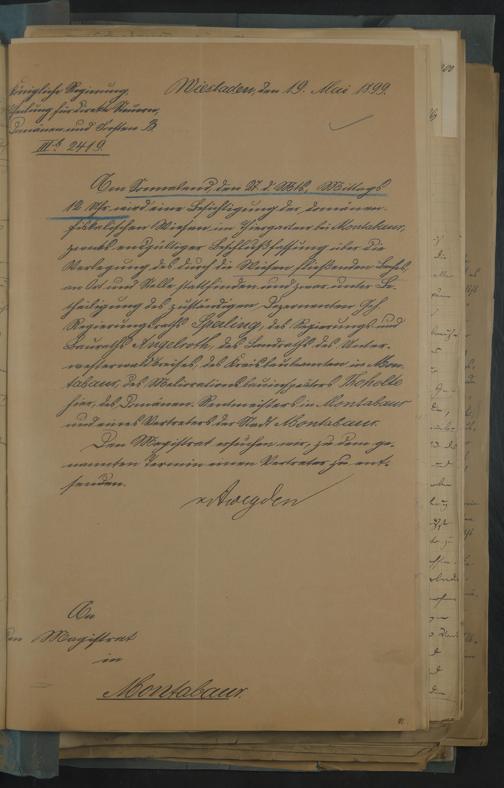 Königliche Regierung,
Abtheilung für direkte Steuern,
Domänen und Forsten B
IIIb 2419.
Wiesbaden, den 19. Mai 1899.
Am Sonnabend, den 27. d. Mts. Mittags
12 Uhr wird eine Besichtigung der domänen-
fiskalischen Wiesen im Thiergarten bei Montabaur,
zwecks endgültiger Beschlußfassung über die
Verlegung des durch die Wiesen fließenden Baches,
an Ort und Stelle stattfinden und zwar unter Be-
theiligung des zuständigen Dezernenten Geh.
Regierungsraths Spaling, des Regierungs und
Bauraths Angelroth, des Landraths des Unter-
westerwaldkreises, des Kreisbaubeamten in Mon-
tabaur, des Meliorationsbauinspektors
hier, des Domänen-Rentmeisters in Montabaur
und eines Vertreters der Stadt Montabaur.
Den Magistrat ersuchen wir, zu dem ge-
nannten Termin einen Vertreter zu ent-
senden.
An
den Magistrat
in
Montabaur.